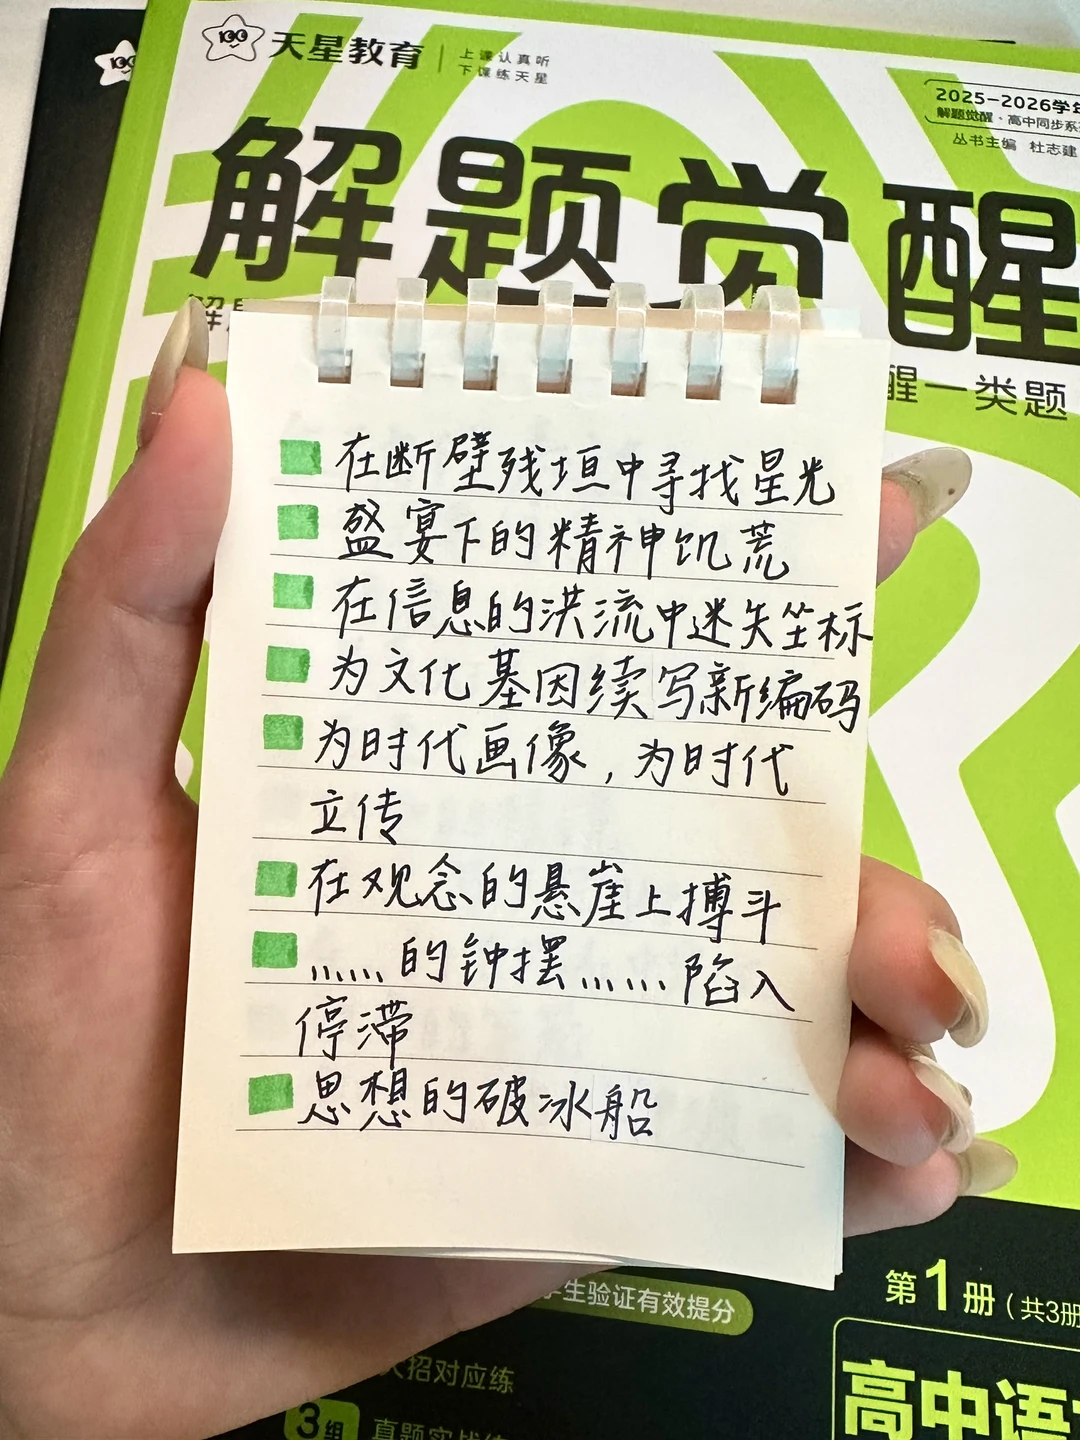 天星教育
上课认真听
下课练天星
2025-2026学年
解题觉醒·高中同步系
丛书主编 杜志建
解题觉醒
醒一类题
在断壁残垣中寻找星光
盛宴下的精神饥荒
在信息的洪流中迷失坐标
为文化基因续写新编码
为时代画像，为时代
立传
在观念的悬崖上搏斗
……的钟摆……陷入
停滞
思想的破冰船
生验证有效提分
第1册（共3册
招对应练
3组
真题实战
高中语